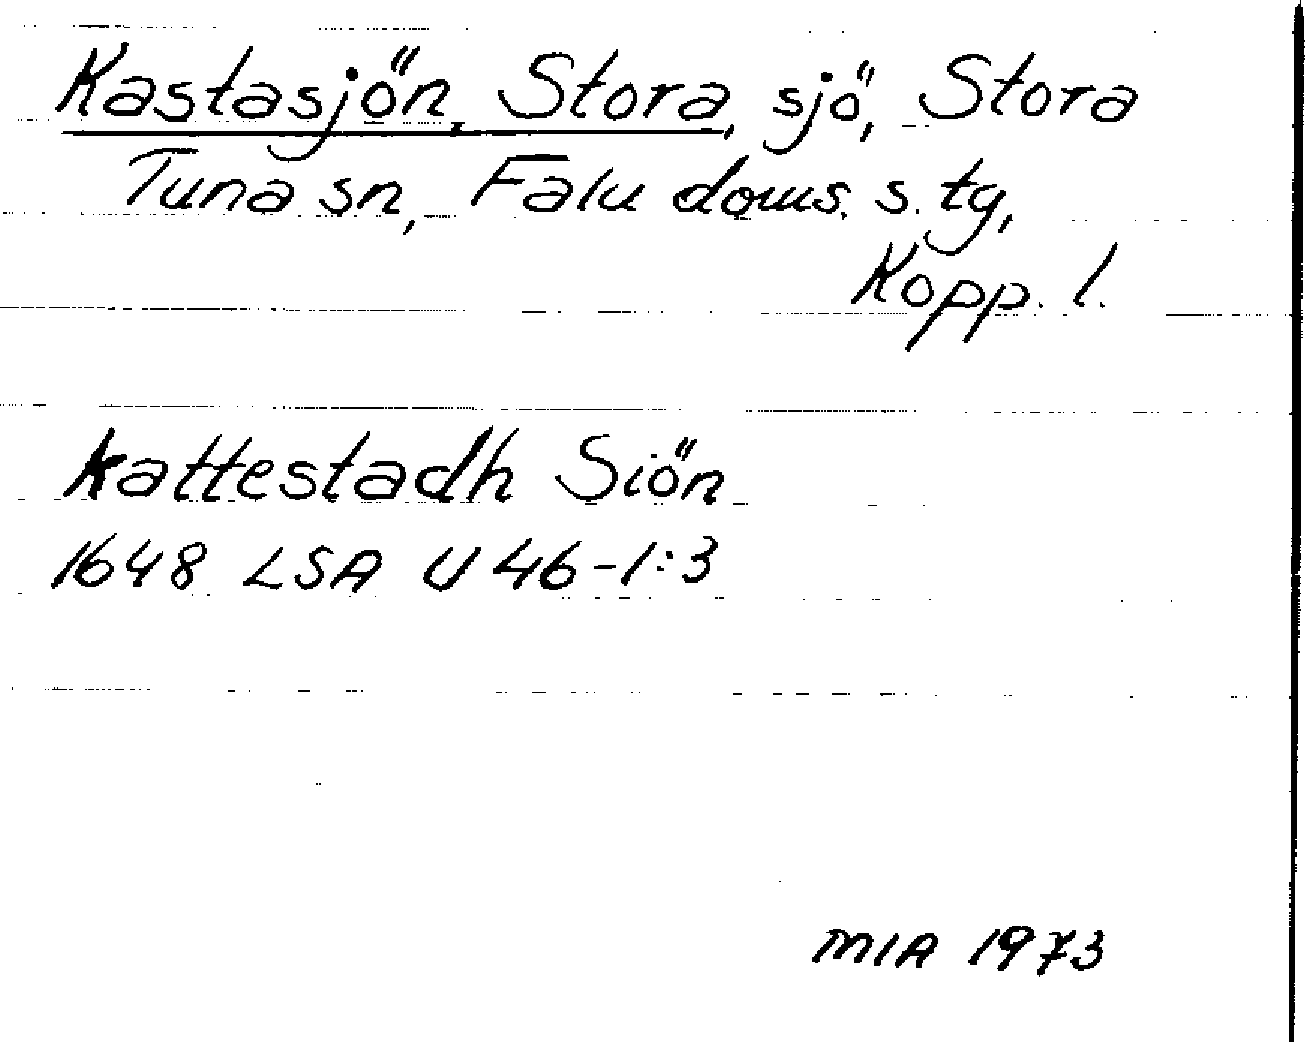 Kastasjön, Stora, sjö, Stora
Tuna sn, Falu doms. s. tg,
Kopp. l.
Kattestadh Siön
1648 LSA U 46-1:3
MIA 1973